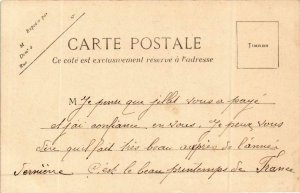 Exposé par
M
Demt à
Rue
CARTE POSTALE
Ce côté est exclusivement réservé à l'adresse
TIMBRE
M Je pense que jellot vous a payé
et j'ai confiance en vous. Je peux vous
dire qu'il fait très beau auprès de l'année
dernière C'est le beau printemps de France